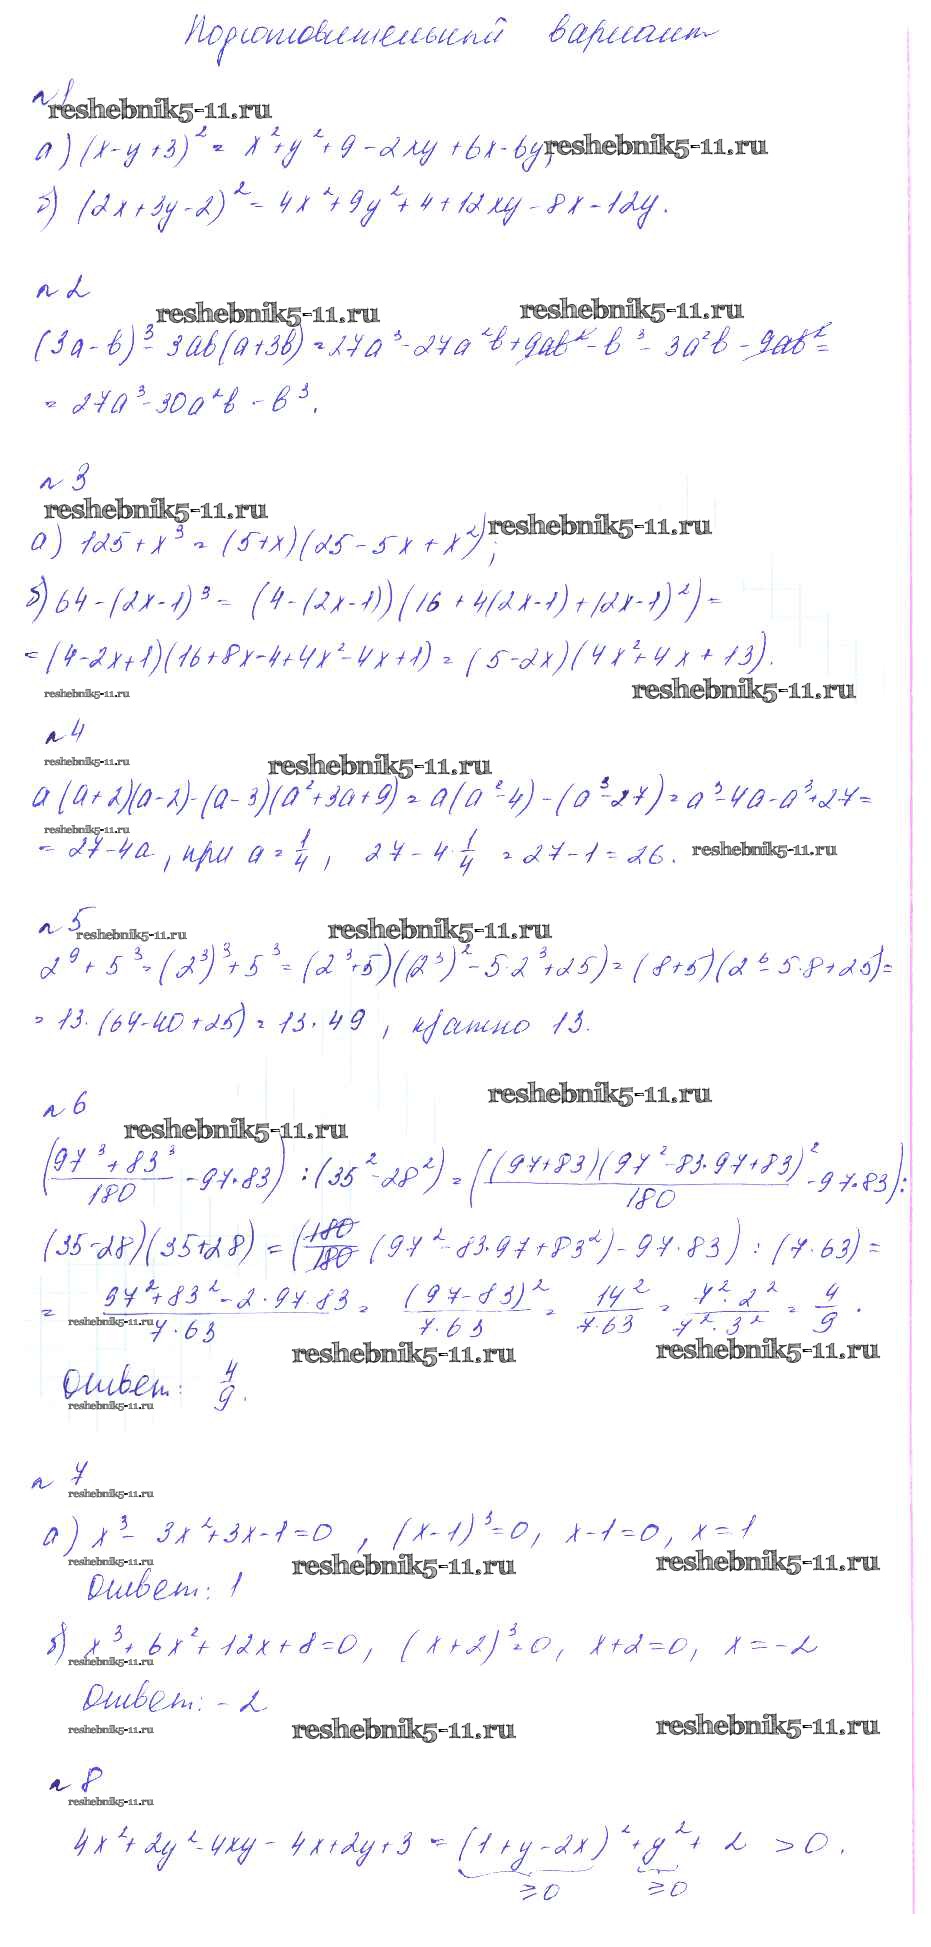 Подготовительный вариант
№1
reshebnik5-11.ru
а) (x-y+3)² = x²+y²+9-2xy+6x-6y; reshebnik5-11.ru
б) (2x+3y-2)² = 4x²+9y²+4+12xy-8x-12y.
№2
reshebnik5-11.ru reshebnik5-11.ru
(3a-b)³-3ab(a+3b)=27a³-27a²b+9ab²-b³-3a²b-9ab²=
= 27a³-30a²b-b³.
№3
reshebnik5-11.ru reshebnik5-11.ru
а) 125+x³ = (5+x)(25-5x+x²);
б) 64-(2x-1)³ = (4-(2x-1))(16+4(2x-1)+(2x-1)²)=
=(4-2x+1)(16+8x-4+4x²-4x+1) = (5-2x)(4x²+4x+13).
reshebnik5-11.ru reshebnik5-11.ru
№4
reshebnik5-11.ru reshebnik5-11.ru
a(a+2)(a-2)-(a-3)(a²+3a+9)=a(a²-4)-(a³-27)=a³-4a-a³+27=
reshebnik5-11.ru
= 27-4a, при a=1/4, 27-4·1/4 = 27-1=26. reshebnik5-11.ru
№5
reshebnik5-11.ru reshebnik5-11.ru
2⁹+5³=(2³)³+5³=(2³+5)((2³)²-5·2³+25)=(8+5)(2⁶-5·8+25)=
= 13·(64-40+25) = 13·49, кратно 13.
reshebnik5-11.ru
№6
reshebnik5-11.ru
((97³+83³)/180 - 97·83) : (35²-28²) = (((97+83)(97²-83·97+83)²)/180 - 97·83) :
(35-28)(35+28) = (180/180 (97²-83·97+83²)-97·83) : (7·63) =
= (97²+83²-2·97·83)/(7·63) = (97-83)²/(7·63) = 14²/(7·63) = (7²·2²)/(7²·3²) = 4/9.
reshebnik5-11.ru
reshebnik5-11.ru reshebnik5-11.ru
Ответ: 4/9.
reshebnik5-11.ru
№7
reshebnik5-11.ru
а) x³-3x²+3x-1=0, (x-1)³=0, x-1=0, x=1
reshebnik5-11.ru reshebnik5-11.ru reshebnik5-11.ru
Ответ: 1
б) x³+6x²+12x+8=0, (x+2)³=0, x+2=0, x=-2
reshebnik5-11.ru
Ответ: -2
reshebnik5-11.ru reshebnik5-11.ru reshebnik5-11.ru
№8
reshebnik5-11.ru
4x²+2y²-4xy-4x+2y+3 = (1+y-2x)²+y²+2 >0.
≥0 ≥0